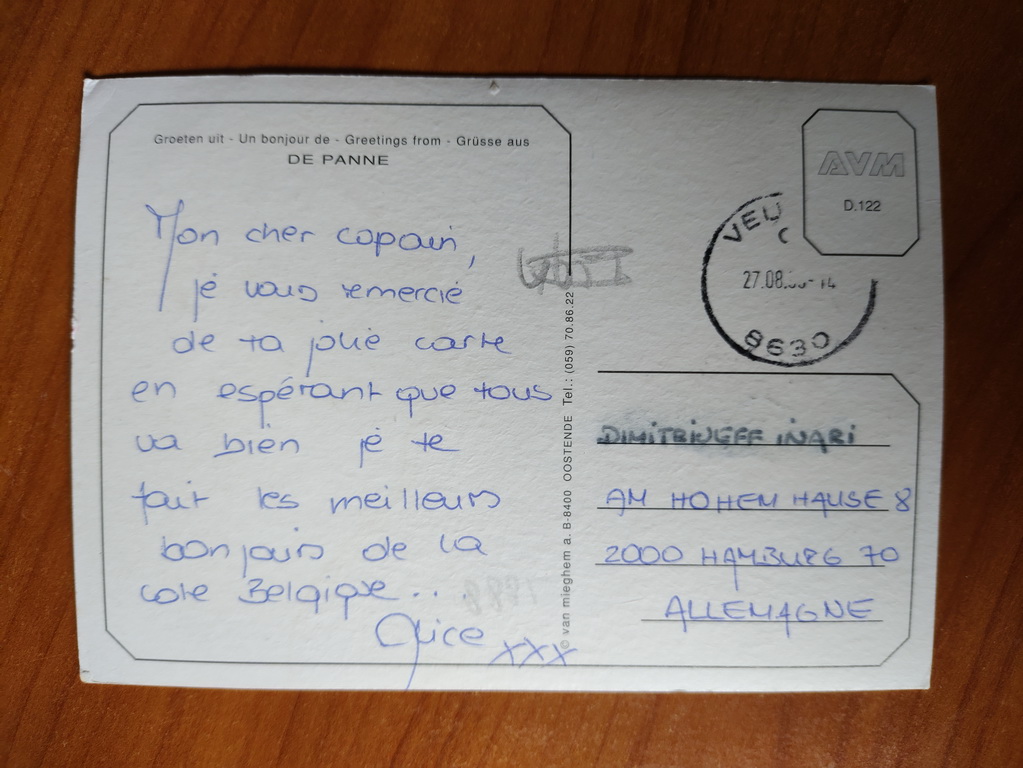 Groeten uit - Un bonjour de - Greetings from - Grüsse aus
DE PANNE
Mon cher copain,
je vous remercie
de ta jolie carte
en espérant que tous
va bien je te
fait les meilleurs
bonjours de la
cote Belgique..
Alice xxx
© van mieghem a. B-8400 OOSTENDE Tel.: (059) 70.86.22
AVM
D.122
VEU
27.08.
8630
INARI
AM HOHEM HAUSE 8
2000 HAMBURG 70
ALLEMAGNE